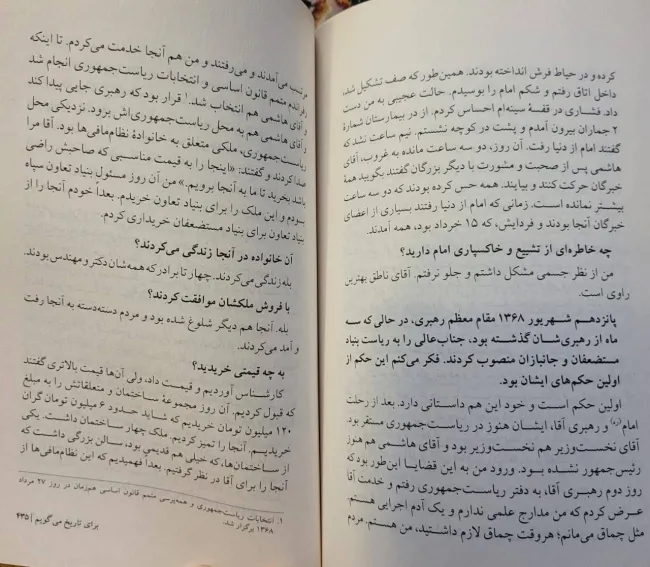 کرده و در حیاط فرش انداخته بودند. همین‌طور که صف تشکیل شد،
داخل اتاق رفتم و شکم امام را بوسیدم. حالت عجیبی به من دست
داد. فشاری در قفسهٔ سینه‌ام احساس کردم. از در بیمارستان شمارهٔ
۲ جماران بیرون آمدم و پشت در کوچه نشستم. نیم ساعت نشد که
گفتند امام از دنیا رفت. آن روز، دو سه ساعت مانده به غروب، آقای
هاشمی پس از صحبت و مشورت با دیگر بزرگان گفتند بگویید همهٔ
خبرگان حرکت کنند و بیایند. همه حس کرده بودند که دو سه ساعت
بیشتر نمانده است. زمانی که امام از دنیا رفتند بسیاری از اعضای
خبرگان آنجا بودند و فردایش، که ۱۵ خرداد بود، همه آمدند.
چه خاطره‌ای از تشییع و خاکسپاری امام دارید؟
من از نظر جسمی مشکل داشتم و جلو نرفتم. آقای ناطق بهترین
راوی است.
پانزدهم شهریور ۱۳۶۸ مقام معظم رهبری، در حالی که سه
ماه از رهبری‌شان گذشته بود، جناب‌عالی را به ریاست بنیاد
مستضعفان و جانبازان منصوب کردند. فکر می‌کنم این حکم از
اولین حکم‌های ایشان بود.
اولین حکم است و خود این هم داستانی دارد. بعد از رحلت
امام(ره) و رهبری آقا، ایشان هنوز در ریاست‌جمهوری مستقر بود.
آقای نخست‌وزیر هم نخست‌وزیر بود و آقای هاشمی هم هنوز
رئیس‌جمهور نشده بود. ورود من به این قضایا این‌طور بود که
روز دوم رهبری آقا، به دفتر ریاست‌جمهوری رفتم و خدمت آقا
عرض کردم که من مدارج علمی ندارم و یک آدم اجرایی هستم.
مثل چماق می‌مانم؛ هروقت چماق لازم داشتید، من هستم. مردم
می‌آمدند و می‌رفتند و من هم آنجا خدمت می‌کردم. تا اینکه
رفراندم متمم قانون اساسی و انتخابات ریاست‌جمهوری انجام شد
و آقای هاشمی هم انتخاب شد.۱ قرار بود که رهبری جایی پیدا کند
و آقای هاشمی هم به محل ریاست‌جمهوری‌اش برود. نزدیکی محل
ریاست‌جمهوری، ملکی متعلق به خانوادهٔ نظام‌مافی‌ها بود. آقا مرا
صدا کردند و گفتند: «اینجا را به قیمت مناسبی که صاحبش راضی
باشد بخرید تا ما به آنجا برویم.» من آن روز مسئول بنیاد تعاون سپاه
بودم و این ملک را برای بنیاد تعاون خریدم. بعداً خودم آنجا را از
بنیاد تعاون برای بنیاد مستضعفان خریداری کردم.
آن خانواده در آنجا زندگی می‌کردند؟
بله زندگی می‌کردند. چهار تا برادر که همه‌شان دکتر و مهندس بودند.
با فروش ملکشان موافقت کردند؟
بله. آنجا هم دیگر شلوغ شده بود و مردم دسته‌دسته به آنجا رفت
و آمد می‌کردند.
به چه قیمتی خریدید؟
کارشناس آوردیم و قیمت داد، ولی آن‌ها قیمت بالاتری گفتند
که قبول کردیم. آن روز مجموعهٔ ساختمان و متعلقاتش را به مبلغ
۱۲۰ میلیون تومان خریدیم که شاید حدود ۶ میلیون تومان گران
خریدیم. آنجا را تمیز کردیم. ملک چهار ساختمان داشت. یکی
از ساختمان‌ها، که خیلی هم قدیمی بود، سالن بزرگی داشت که
آنجا را برای آقا در نظر گرفتیم. بعداً فهمیدیم که این نظام‌مافی‌ها از
۱. انتخابات ریاست‌جمهوری و همه‌پرسی متمم قانون اساسی هم‌زمان در روز ۲۷ مرداد
۱۳۶۸ برگزار شد.
برای تاریخ می‌گویم | ۴۳۵